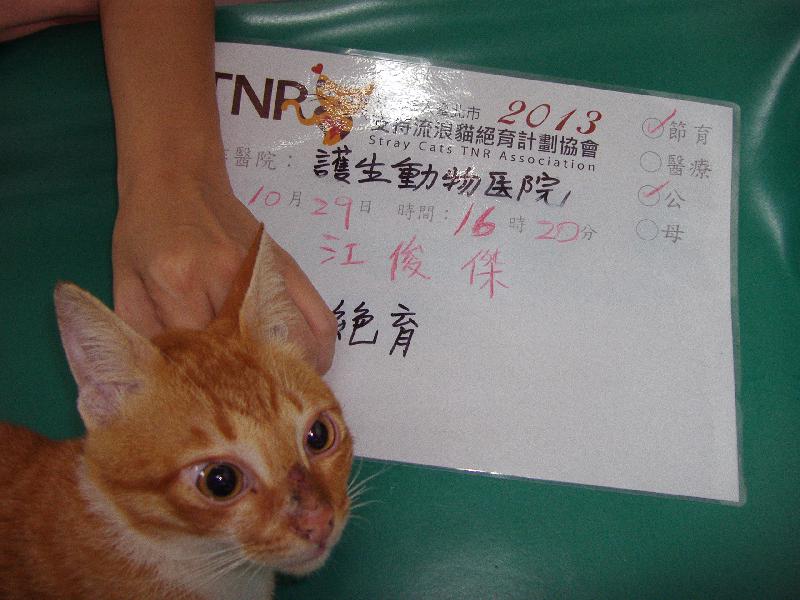 TNR 台北市 2013
支持流浪貓絕育計劃協會
Stray Cats TNR Association
醫院： 護生動物医院
10月29日 時間：16時20分
江俊傑
絕育
節育
醫療
公
母